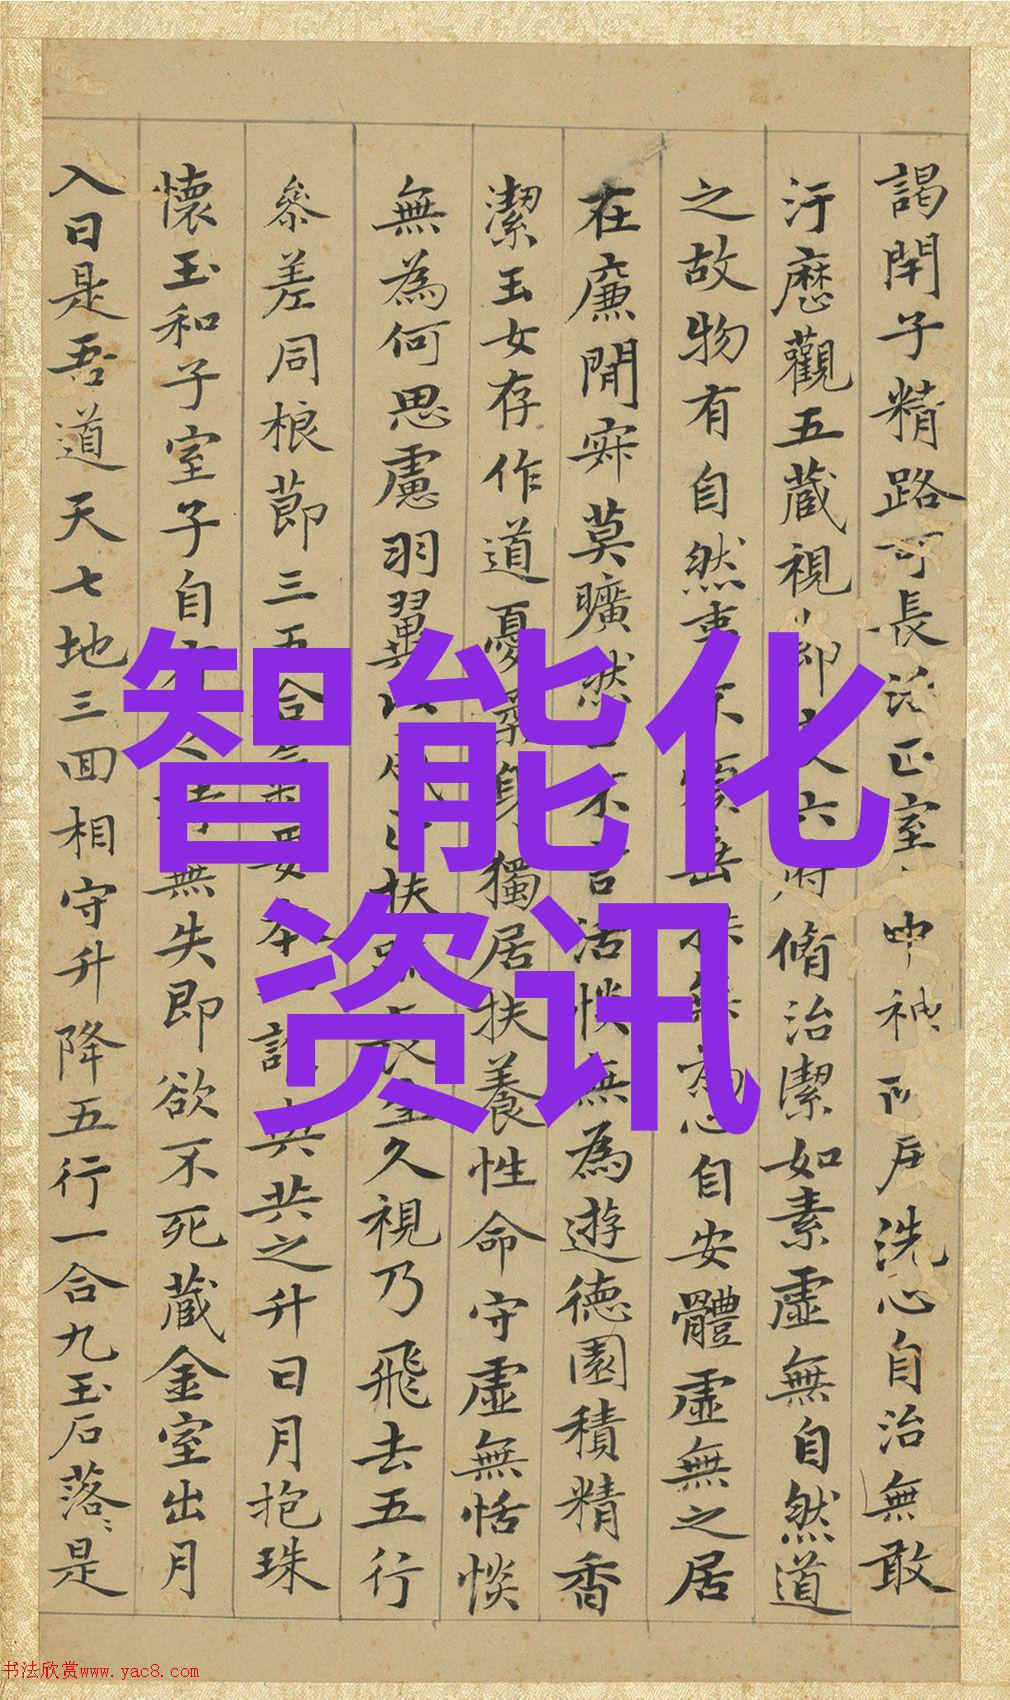 謁閇子精路可長活正室中神所居洗心自治無敢
汙歷觀五藏視節度六府脩治潔如素虛無自然道
之故物有自然事不煩垂拱無為心自安體虛無之居
在廉間寂莫曠然口不言活惔無為遊德園積精香
潔玉女存作道憂柔身獨居扶養性命守虛無恬惔
無為何思慮羽翼以成正扶疏長生久視乃飛去五行
參差同根節三五合氣要本一誰共共之升日月抱珠
懷玉和子室子自有之持無失即欲不死藏金室出月
入日是吾道天七地三回相守升降五行一合九玉石落〻是
智能化
资讯
书法欣赏www.yac8.com